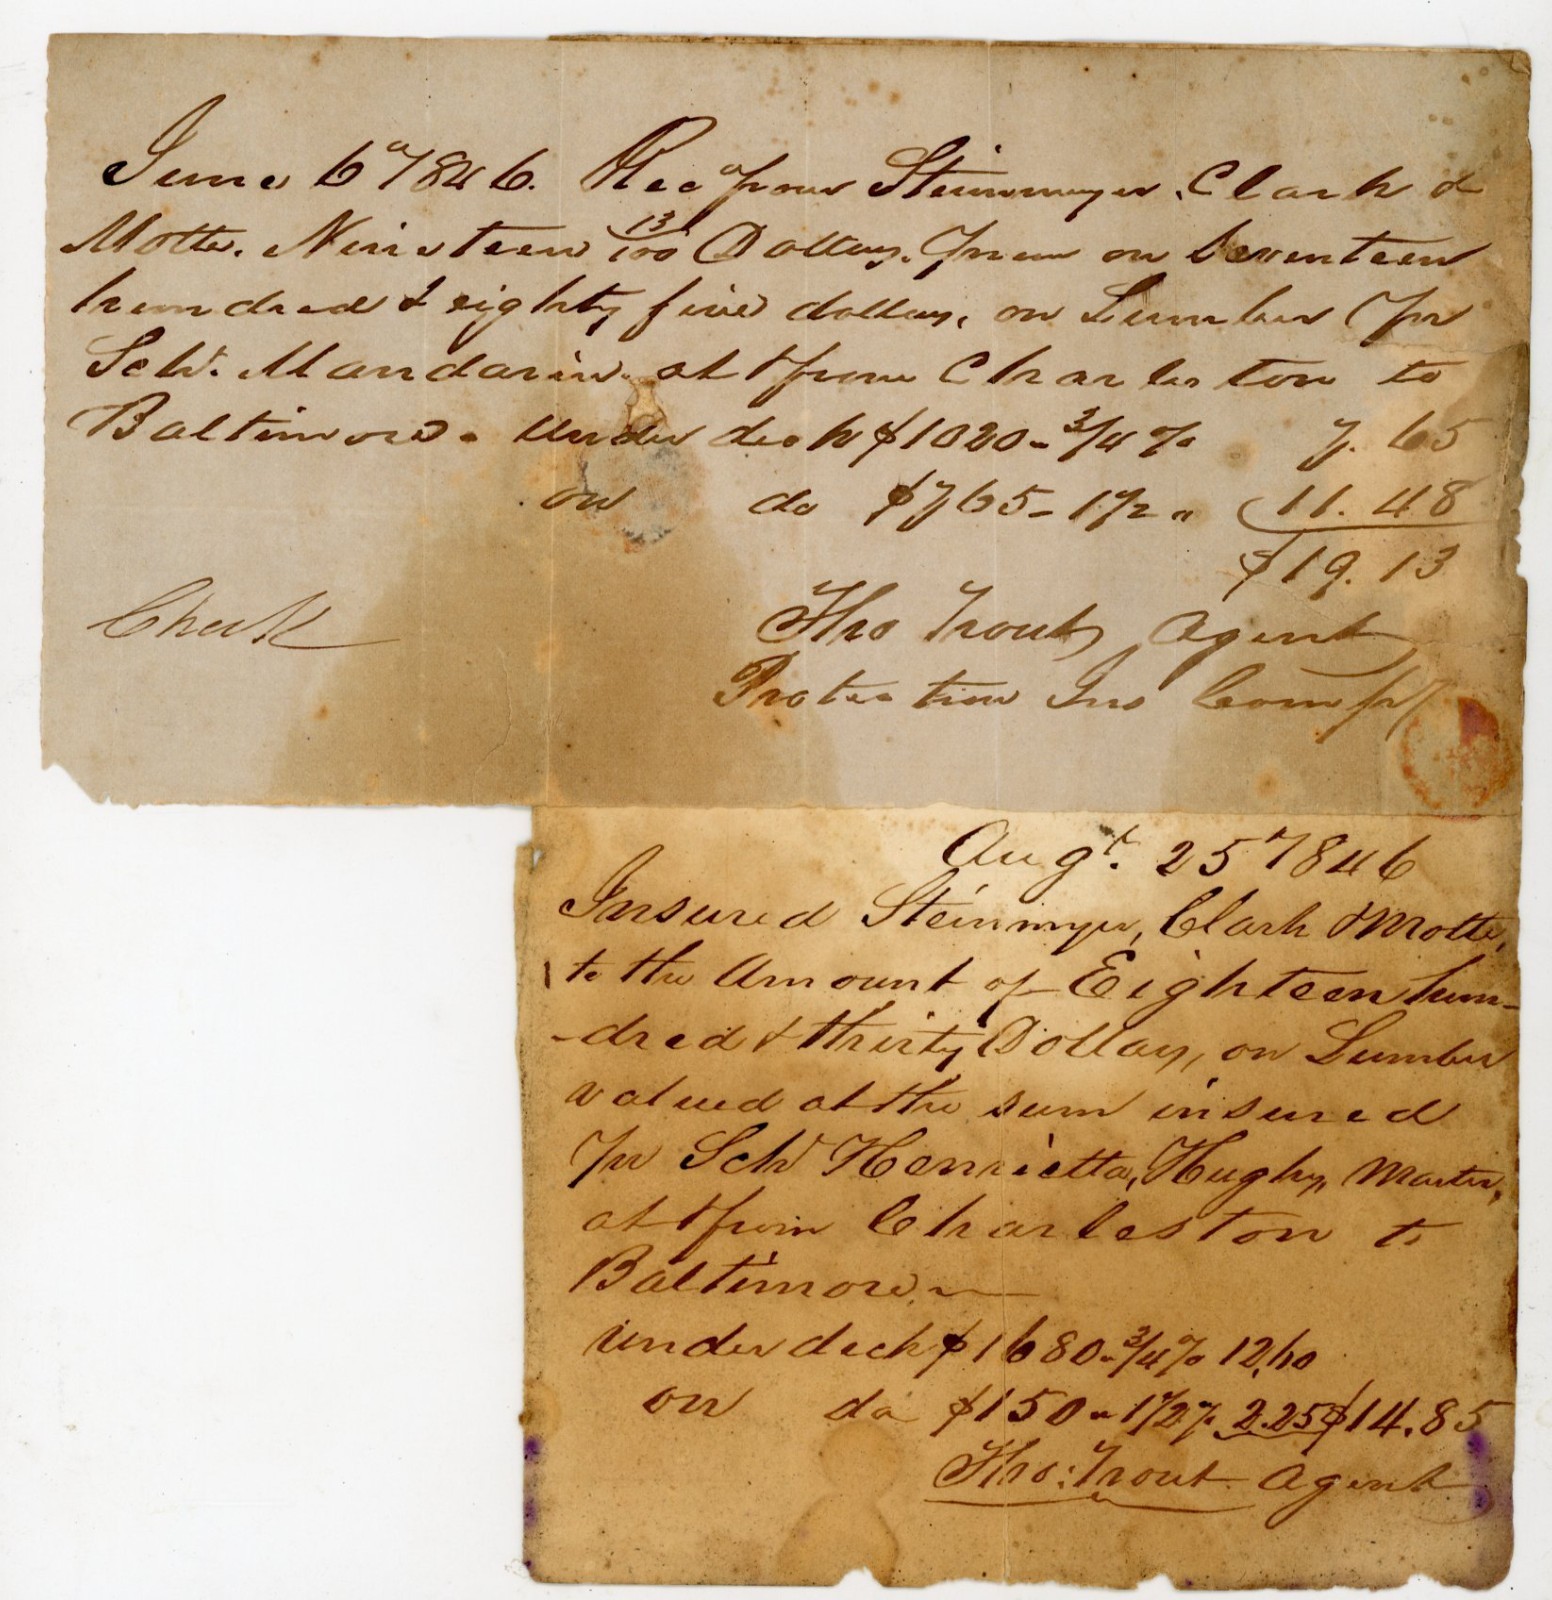 June 6th 1846. Recd from Steinmeyer, Clark &
Motte. Nineteen 13/100 Dollars. Prem on Seventeen
hundred & eighty five dollars, on Lumber Pr
Schr. Mandarin. at & from Charleston to
Baltimore. under deck $1020 - 3/4 % 7.65
on do $765 - 1 1/2 " 11.48
$19.13
Check
Tho Trout, Agent
Protection Ins Compy
Augt. 25 1846
Insured Steinmyer, Clark & Motte,
to the Amount of Eighteen hun-
-dred & thirty Dollars, on Lumber
valued at the sum insured
Pr Schr Henrietta, Hughs, Master,
at & from Charleston to
Baltimore
under deck $1680 - 3/4 % 12.60
on do $150 - 1 1/2 % 2.25 $14.85
Tho: Trout Agent